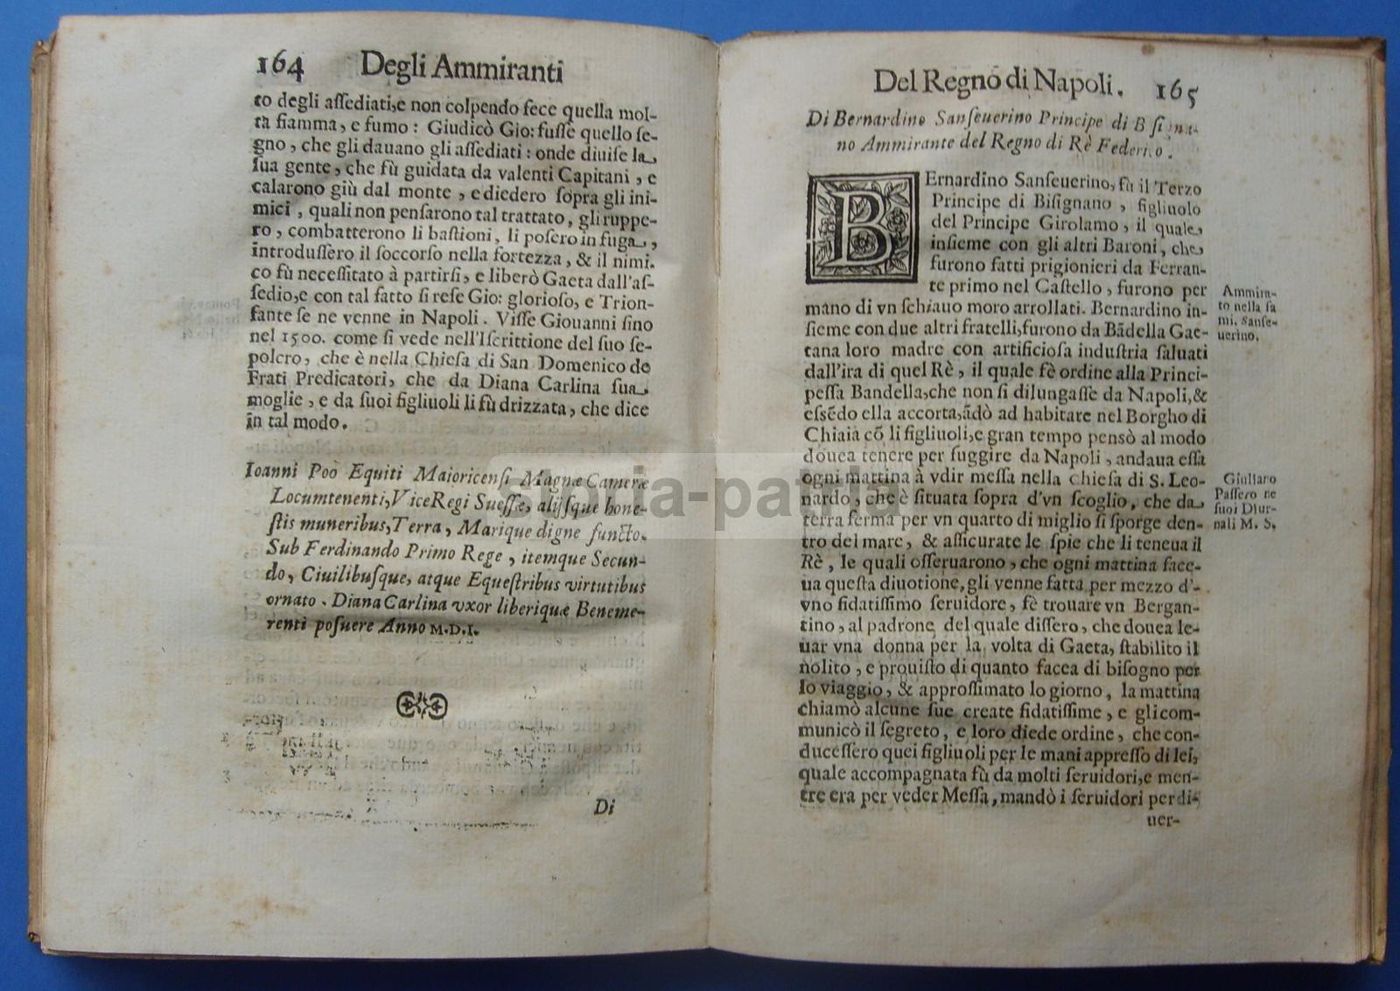 164 Degli Ammiranti
to degli aſſediati,e non colpendo fece quella mol-
ta fiamma, e fumo : Giudicò Gio: fuſſe quello ſe-
gno, che gli dauano gli aſſediati : onde diuiſe la
ſua gente, che fù guidata da valenti Capitani, e
calarono giù dal monte, e diedero ſopra gli ini-
mici, quali non penſarono tal trattato, gli ruppe-
ro, combatterono li baſtioni, li poſero in fuga,
introduſſero il ſoccorſo nella fortezza, & il nimi.
co fù neceſſitato à partirſi, e liberò Gaeta dall'aſ-
ſedio,e con tal fatto ſi reſe Gio: glorioſo, e Trion-
fante ſe ne venne in Napoli. Viſſe Giouanni ſino
nel 1500. come ſi vede nell'Iſcrittione del ſuo ſe-
polcro, che è nella Chieſa di San Domenico de
Frati Predicatori, che da Diana Carlina ſua
moglie, e da ſuoi figliuoli li fù drizzata, che dice
in tal modo.
Ioanni Poò Equiti Maioricenſi Magnæ Cameræ
Locumtenenti,ViceRegi Sueſſæ, alijſque hone-
ſtis muneribus,Terra, Marique digne functo.
Sub Ferdinando Primo Rege, itemque Secun-
do, Ciuilibuſque, atque Equeſtribus virtutibus
ornato. Diana Carlina vxor liberiquæ Beneme-
renti poſuere Anno M.D.I.
Di
Del Regno di Napoli. 165
Di Bernardino Sanſeuerino Principe di Biſigna-
no Ammirante del Regno di Rè Federico.
BErnardino Sanſeuerino, fù il Terzo
Principe di Biſignano, figliuolo
del Principe Girolamo, il quale
inſieme con gli altri Baroni, che
furono fatti prigionieri da Ferran-
te primo nel Caſtello, furono per
mano di vn ſchiauo moro arrollati. Bernardino in-
ſieme con due altri fratelli,furono da Bãdella Gae-
tana loro madre con artificioſa induſtria ſaluati
dall'ira di quel Rè, il quale fè ordine alla Princi-
peſſa Bandella,che non ſi dilungaſſe da Napoli,&
eſsẽdo ella accorta,ãdò ad habitare nel Borgho di
Chiaia cõ li figliuoli,e gran tempo pensò al modo
douea tenere per fuggire da Napoli, andaua eſſa
ogni mattina à vdir meſſa nella chieſa di S. Leo-
nardo, che è ſituata ſopra d'vn ſcoglio, che da
terra ferma per vn quarto di miglio ſi ſporge den-
tro del mare, & aſſicurate le ſpie che li teneua il
Rè, le quali oſſeruarono, che ogni mattina face-
ua queſta diuotione,gli venne fatta per mezzo d'-
vno fidatiſſimo ſeruidore, fè trouare vn Bergan-
tino, al padrone del quale diſſero, che douea le-
uar vna donna per la volta di Gaeta, ſtabilito il
nolito, e prouiſto di quanto facea di biſogno per
lo viaggio, & approſſimato lo giorno, la mattina
chiamò alcune ſue create fidatiſſime, e gli com-
municò il ſegreto, e loro diede ordine, che con-
duceſſero quei figliuoli per le mani appreſſo di lei,
quale accompagnata fù da molti ſeruidori,e men-
tre era per veder Meſſa, mandò i ſeruidori per di-
uer-
Ammira-
to nella fa
mi. Sanſe-
uerino.
Giuliaro
Paſſero ne
ſuoi Diur-
nali M. S.
storia-patria